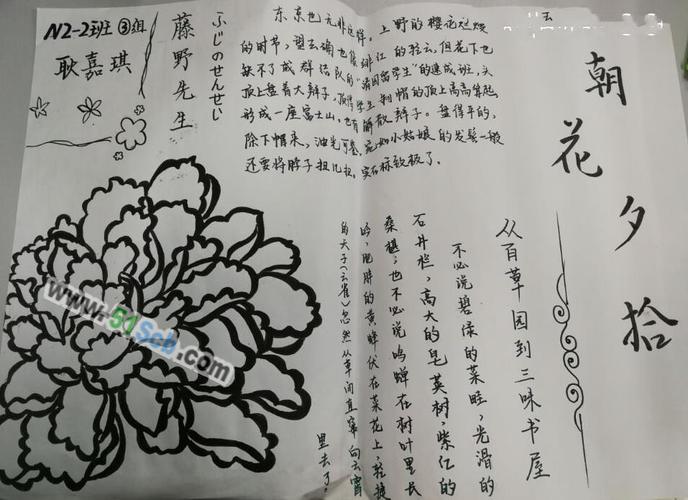 N2-2班 ③组
耿嘉琪
藤野先生
ふじのせんせい
东京也无非这样。上野的樱花烂熳
的时节，望去确也像绯红的轻云，但花下也
缺不了成群结队的“清国留学生”的速成班，头
顶上盘着大辫子，顶得学生制帽的顶上高高耸起
形成一座富士山。也有解散辫子，盘得平的，
除下帽来，油光可鉴，宛如小姑娘的发髻一般
还要将脖子扭几扭。实在标致极了。
朝花夕拾
从百草园到三味书屋
不必说碧绿的菜畦，光滑的
石井栏，高大的皂荚树，紫红的
桑椹；也不必说鸣蝉在树叶里长
吟，肥胖的黄蜂伏在菜花上，轻捷
的天子（云雀）忽然从草间直窜向云霄
里去了。
www.51Scb.com